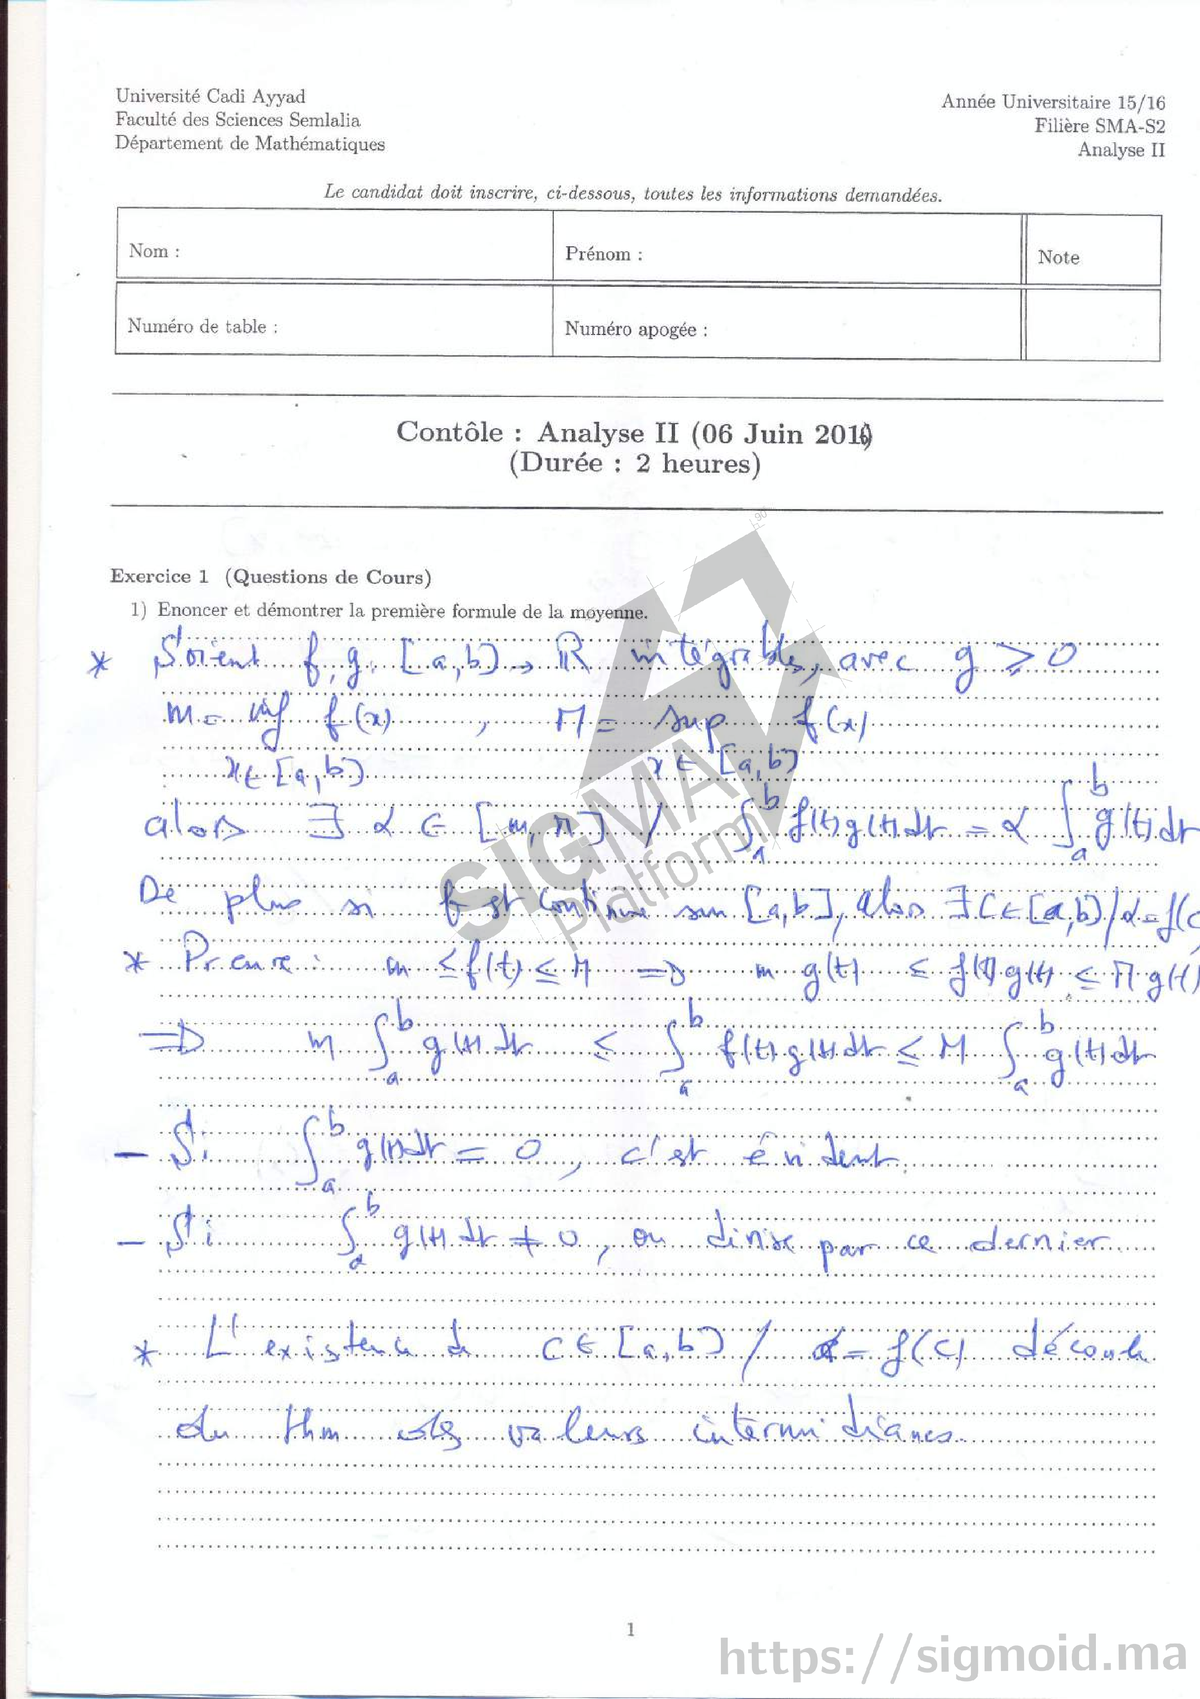 Université Cadi Ayyad
Faculté des Sciences Semlalia
Département de Mathématiques
Année Universitaire 15/16
Filière SMA-S2
Analyse II
Le candidat doit inscrire, ci-dessous, toutes les informations demandées.
Nom :
Prénom :
Note
Numéro de table :
Numéro apogée :
Contôle : Analyse II (06 Juin 2016)
(Durée : 2 heures)
Exercice 1 (Questions de Cours)
1) Enoncer et démontrer la première formule de la moyenne.
* Soient f, g : [a,b] → ℝ intégrables, avec g ≥ 0
m = inf f(x) , M = sup f(x)
x ∈ [a,b] x ∈ [a,b]
alors ∃ α ∈ [m, M] / ∫_a^b f(t)g(t)dt = α ∫_a^b g(t)dt
De plus si f est continue sur [a,b], alors ∃ c ∈ [a,b] / α = f(c
* Preuve : m ≤ f(t) ≤ M ⇒ m g(t) ≤ f(t) g(t) ≤ M g(t)
⇒ m ∫_a^b g(t)dt ≤ ∫_a^b f(t)g(t)dt ≤ M ∫_a^b g(t)dt
– Si ∫_a^b g(t)dt = 0, c'est évident.
– Si ∫_a^b g(t)dt ≠ 0, on divise par ce dernier
* L'existence de c ∈ [a,b] / α = f(c) découle
du thm des valeurs intermédiaires
1
SIGMA
Platform
https://sigmoid.ma